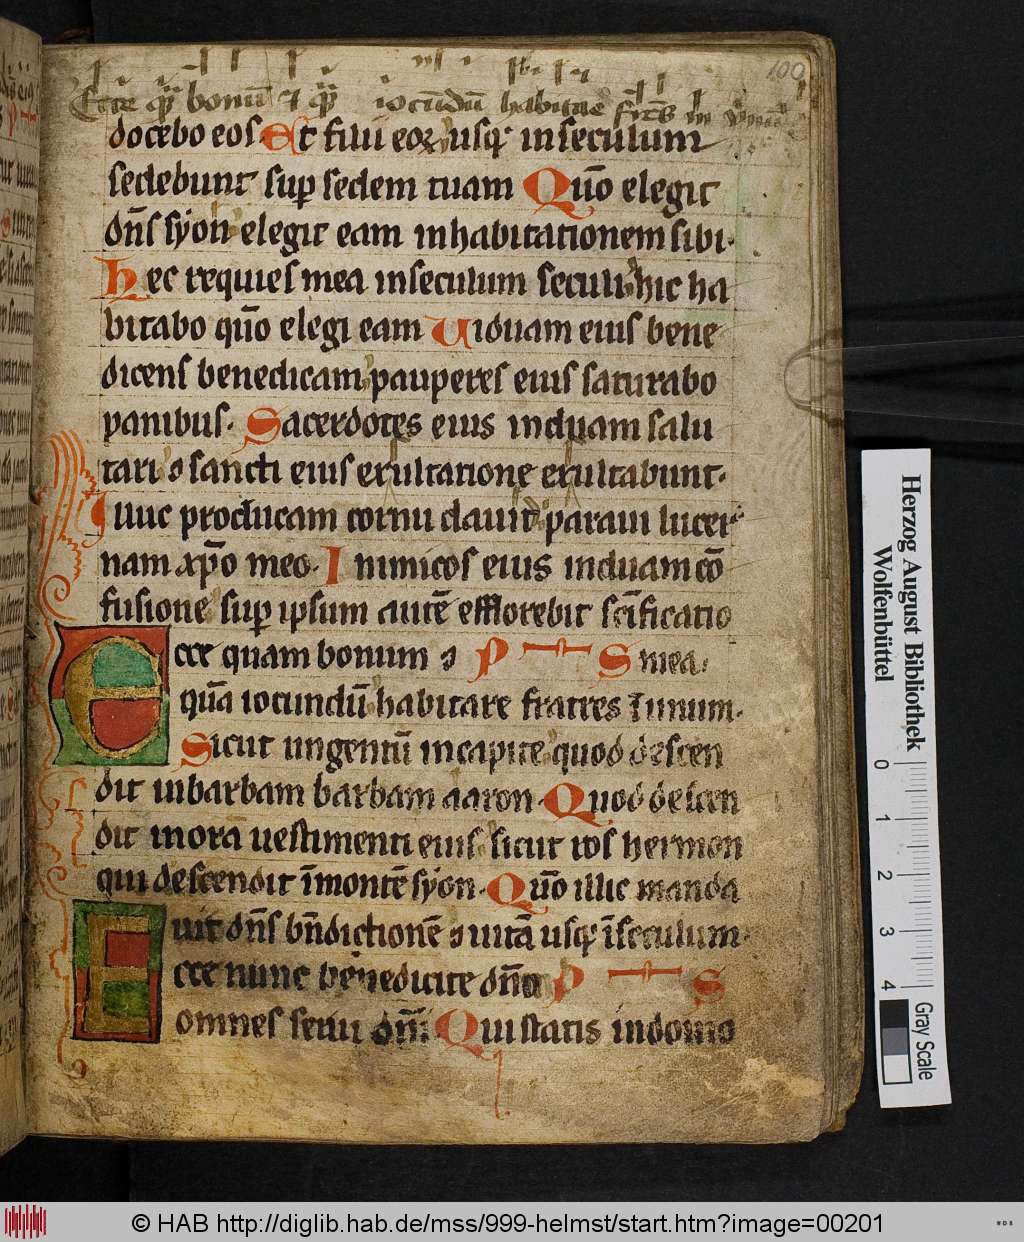 100
Ecce qua bonū & qua iocūdū habitare frēs in
docebo eos. Et filii eoꝝ usqꝫ inseculum
sedebunt suꝑ sedem tuam Quō elegit
dn̄s syon elegit eam inhabitationem sibi.
Hec requies mea inseculum seculi hic ha
bitabo quō elegi eam Uiduam eius bene
dicens benedicam pauperes eius saturabo
panibus. Sacerdotes eius induam salu
tari ⁊ sancti eius exultatione exultabunt.
Illuc producam cornu dauid paraui lucer
nam xp̄o meo. Inimicos eius induam cō
fusione suꝑ ipsum autē efflorebit scīficatio
Ecce quam bonum ⁊ P S mea.
quā iocundū habitare fratres ī unum.
Sicut ungentū incapite quod descen
dit inbarbam barbam aaron. Quod descen
dit inorā uestimenti eius sicut ros hermon
qui descendit ī montē syon. Quō illic manda
uit dn̄s bn̄dictionē ⁊ uitā usqꝫ ī seculum.
Ecce nunc benedicite dn̄o P S
omnes serui dn̄i Qui statis indomo
Herzog August Bibliothek
Wolfenbüttel
0 1 2 3 4
Gray Scale
© HAB http://diglib.hab.de/mss/999-helmst/start.htm?image=00201